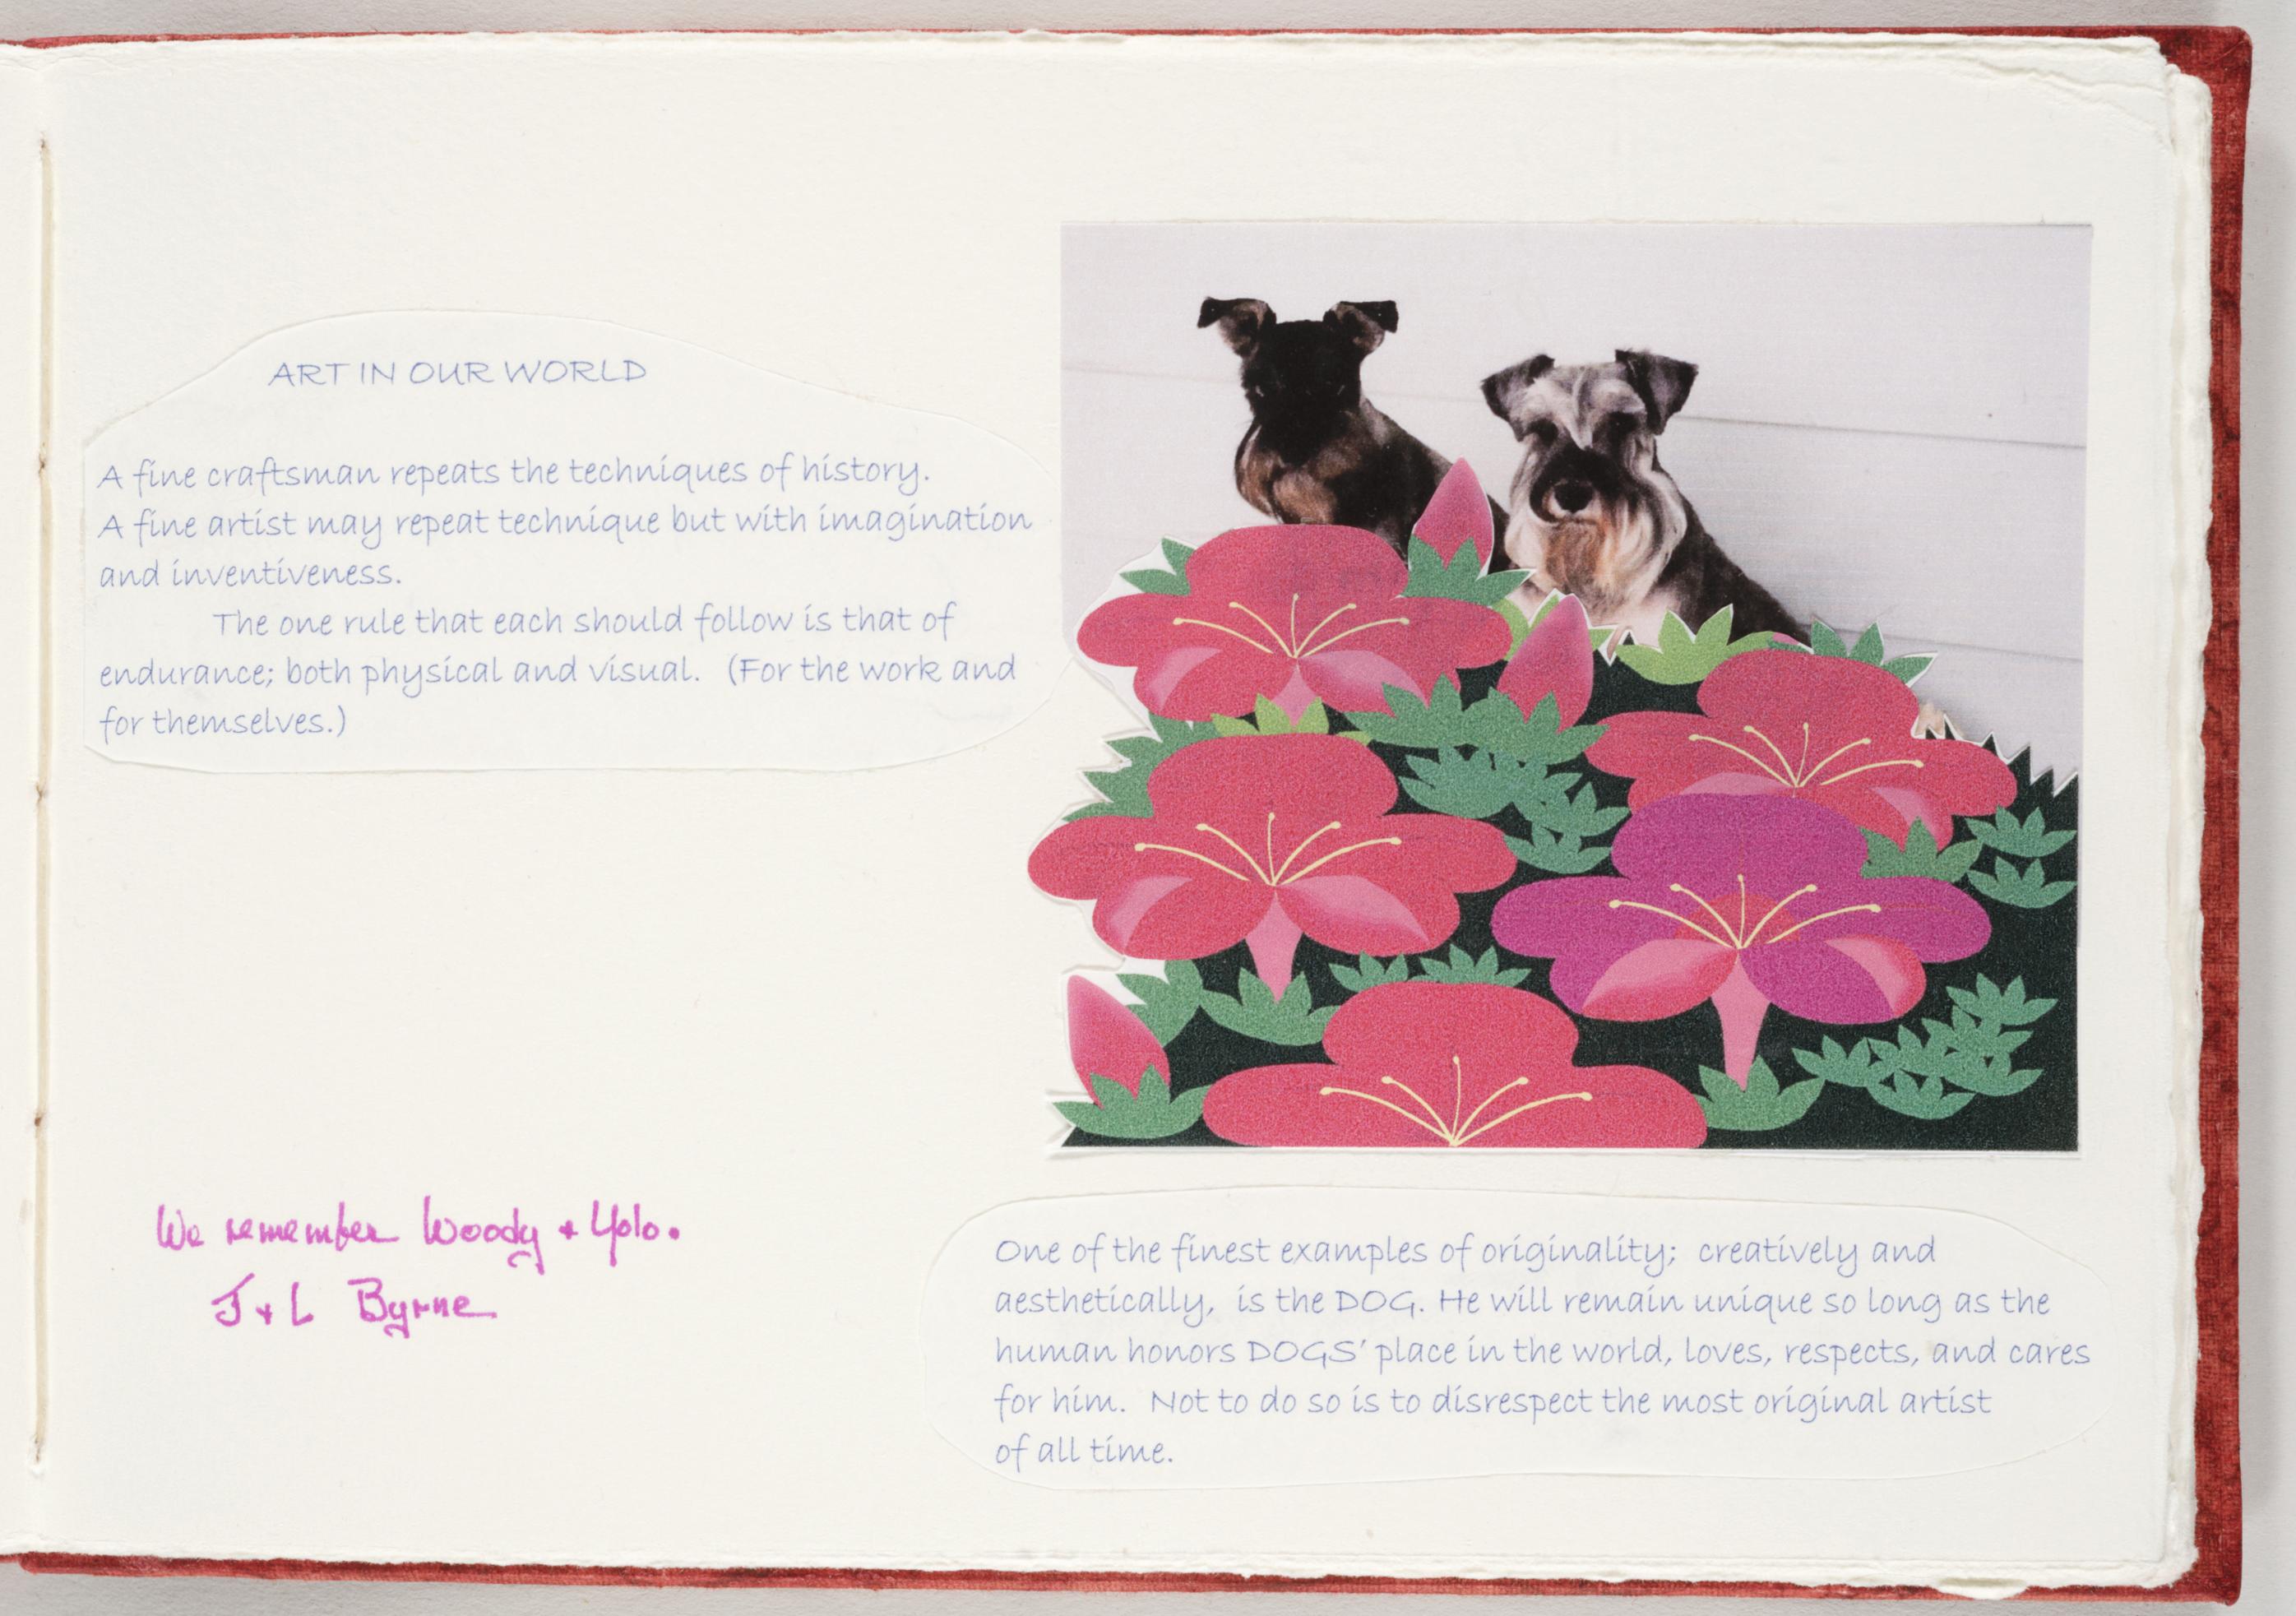 ART IN OUR WORLD
A fine craftsman repeats the techniques of history.
A fine artist may repeat technique but with imagination
and inventiveness.
The one rule that each should follow is that of
endurance; both physical and visual. (For the work and
for themselves.)
We remember Woody + Yolo.
J + L Byrne
One of the finest examples of originality; creatively and
aesthetically, is the DOG. He will remain unique so long as the
human honors DOGS' place in the world, loves, respects, and cares
for him. Not to do so is to disrespect the most original artist
of all time.